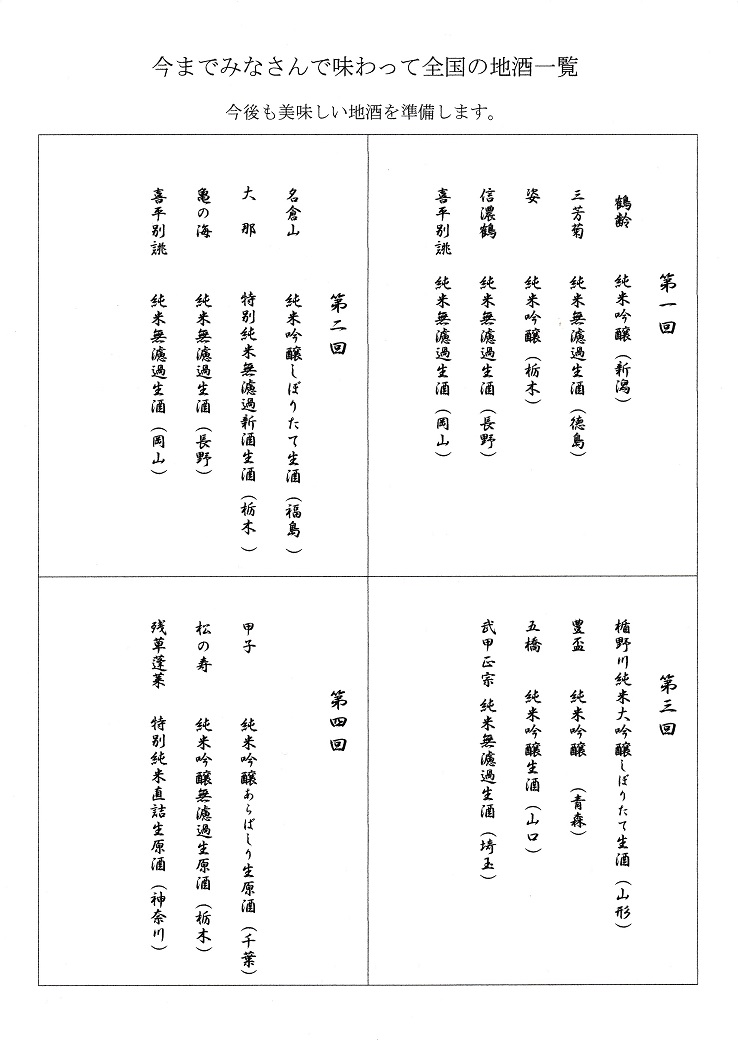 今までみなさんで味わって全国の地酒一覧
今後も美味しい地酒を準備します。
第一回
鶴齢 純米吟醸（新潟）
三芳菊 純米無濾過生酒（徳島）
姿 純米吟醸（栃木）
信濃鶴 純米無濾過生酒（長野）
喜平別誂 純米無濾過生酒（岡山）
第二回
名倉山 純米吟醸しぼりたて生酒（福島）
大那 特別純米無濾過新酒生酒（栃木）
亀の海 純米無濾過生酒（長野）
喜平別誂 純米無濾過生酒（岡山）
第三回
楯野川純米大吟醸しぼりたて生酒（山形）
豊盃 純米吟醸（青森）
五橋 純米吟醸生酒（山口）
武甲正宗 純米無濾過生酒（埼玉）
第四回
甲子 純米吟醸あらばしり生原酒（千葉）
松の寿 純米吟醸無濾過生原酒（栃木）
残草蓬莱 特別純米直詰生原酒（神奈川）